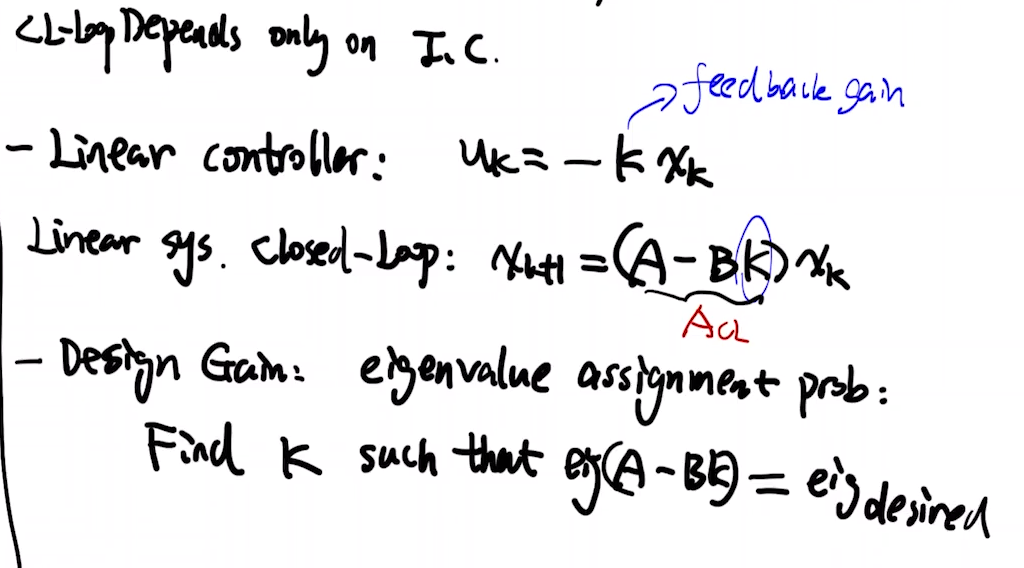 CL-Loop Depends only on I.C.
feedback gain
- Linear controller: uₖ = - K xₖ
Linear sys. Closed-Loop: xₖ₊₁ = (A - BK) xₖ
A_CL
- Design Gain: eigenvalue assignment prob:
Find K such that eig(A - BK) = eig_desired